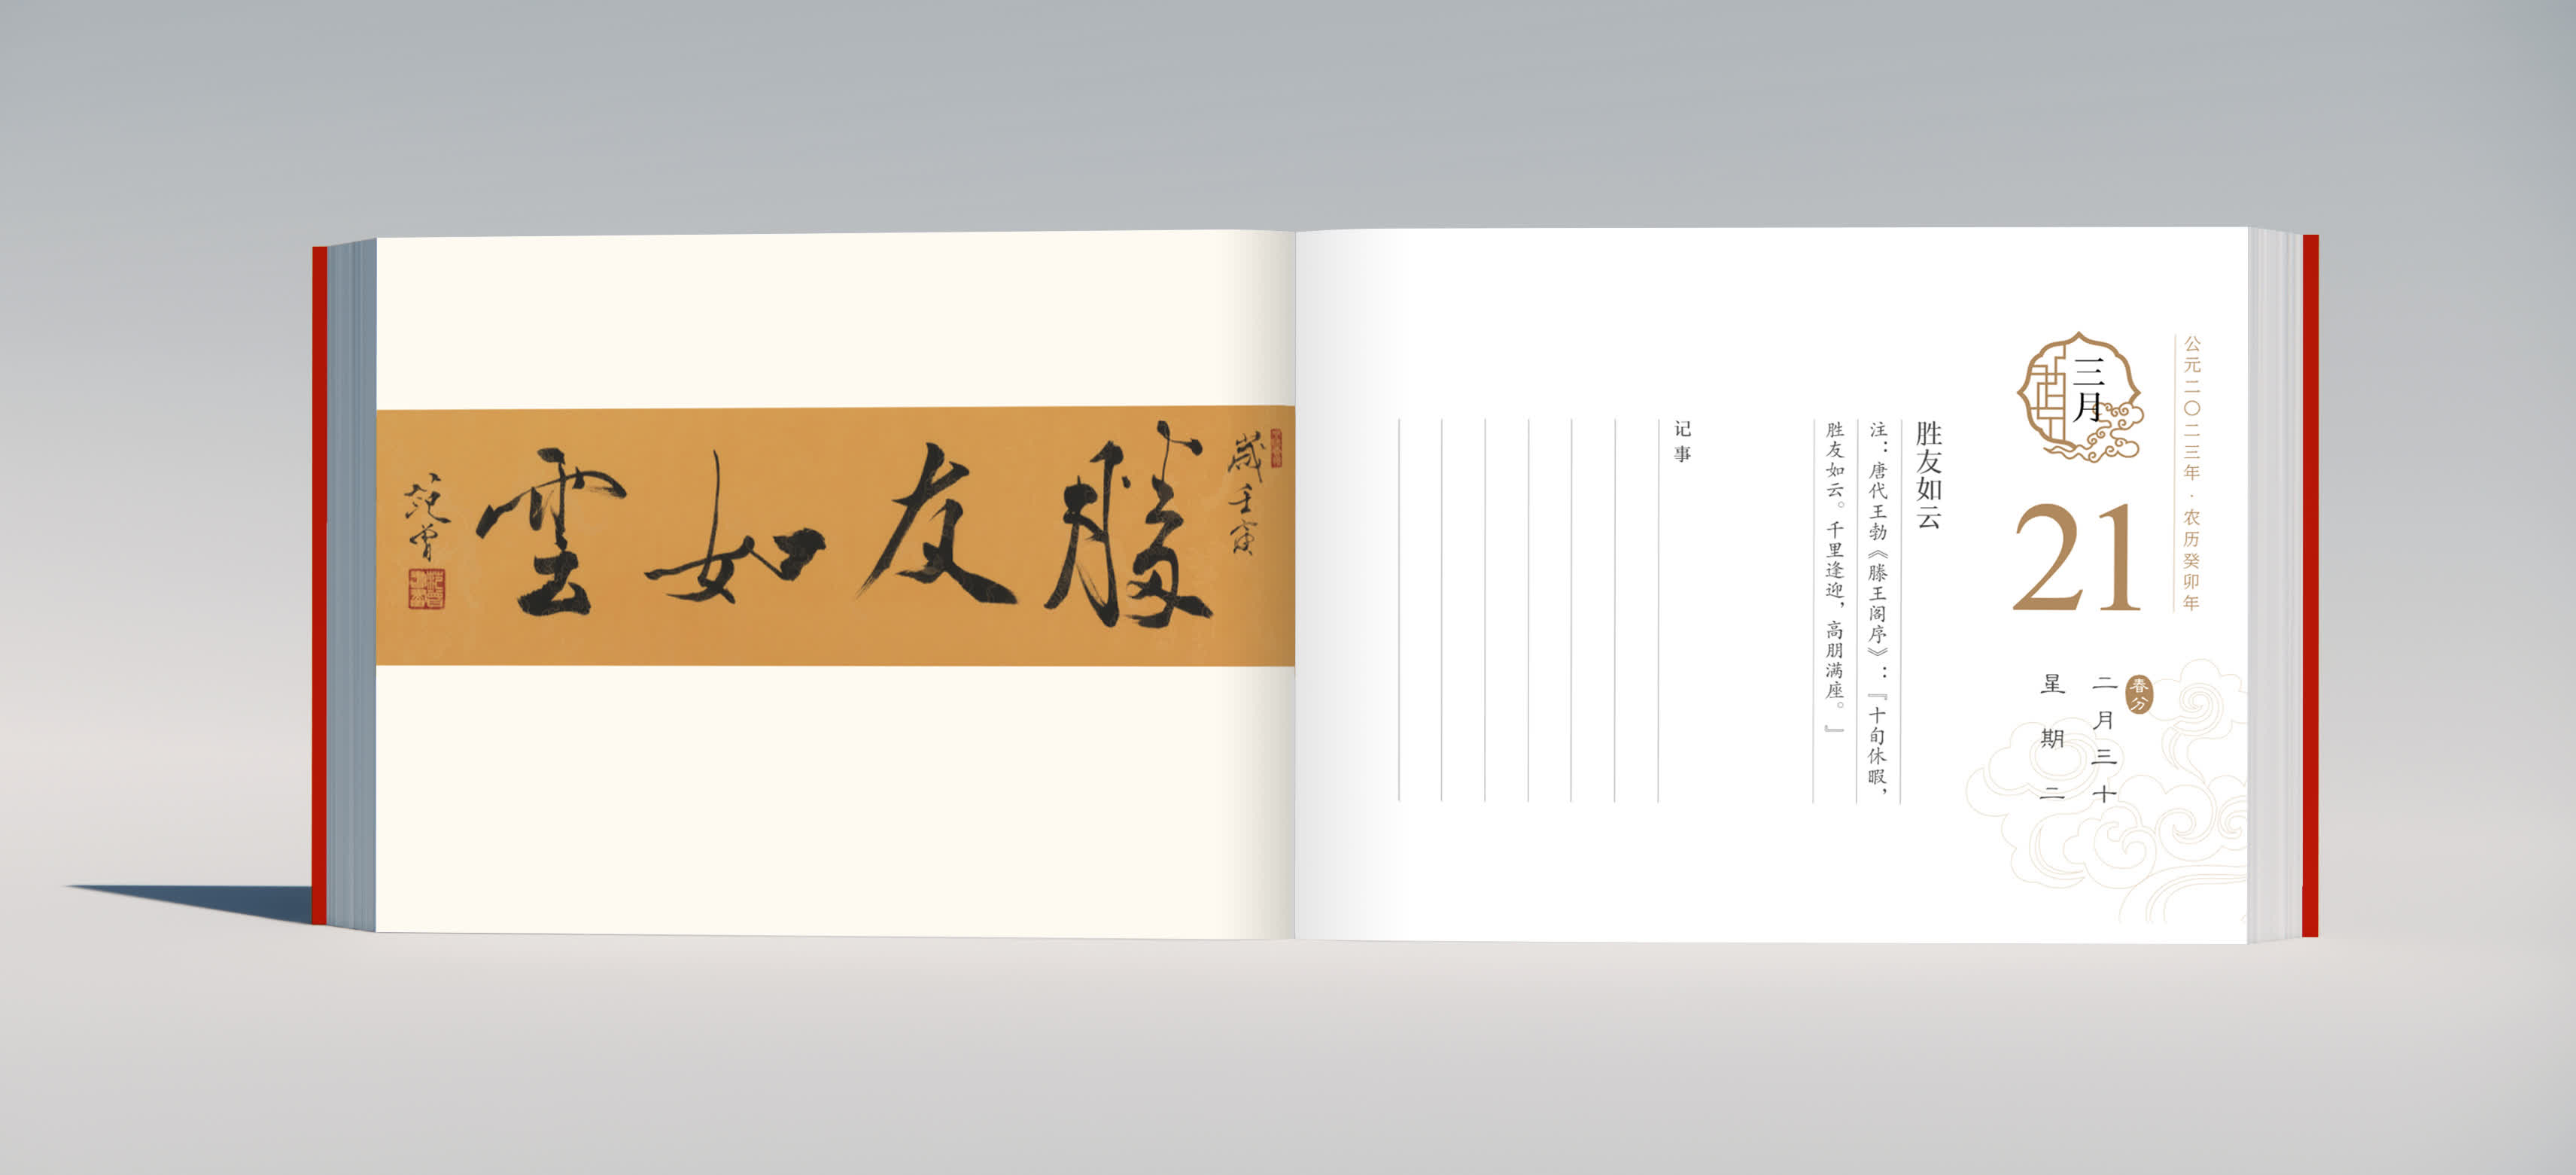 歲壬寅
勝友如雲
范曾
公元二〇二三年·农历癸卯年
三月
21
春分
二月三十
星期二
胜友如云
注：唐代王勃《滕王阁序》：『十旬休暇，
胜友如云。千里逢迎，高朋满座。』
记事